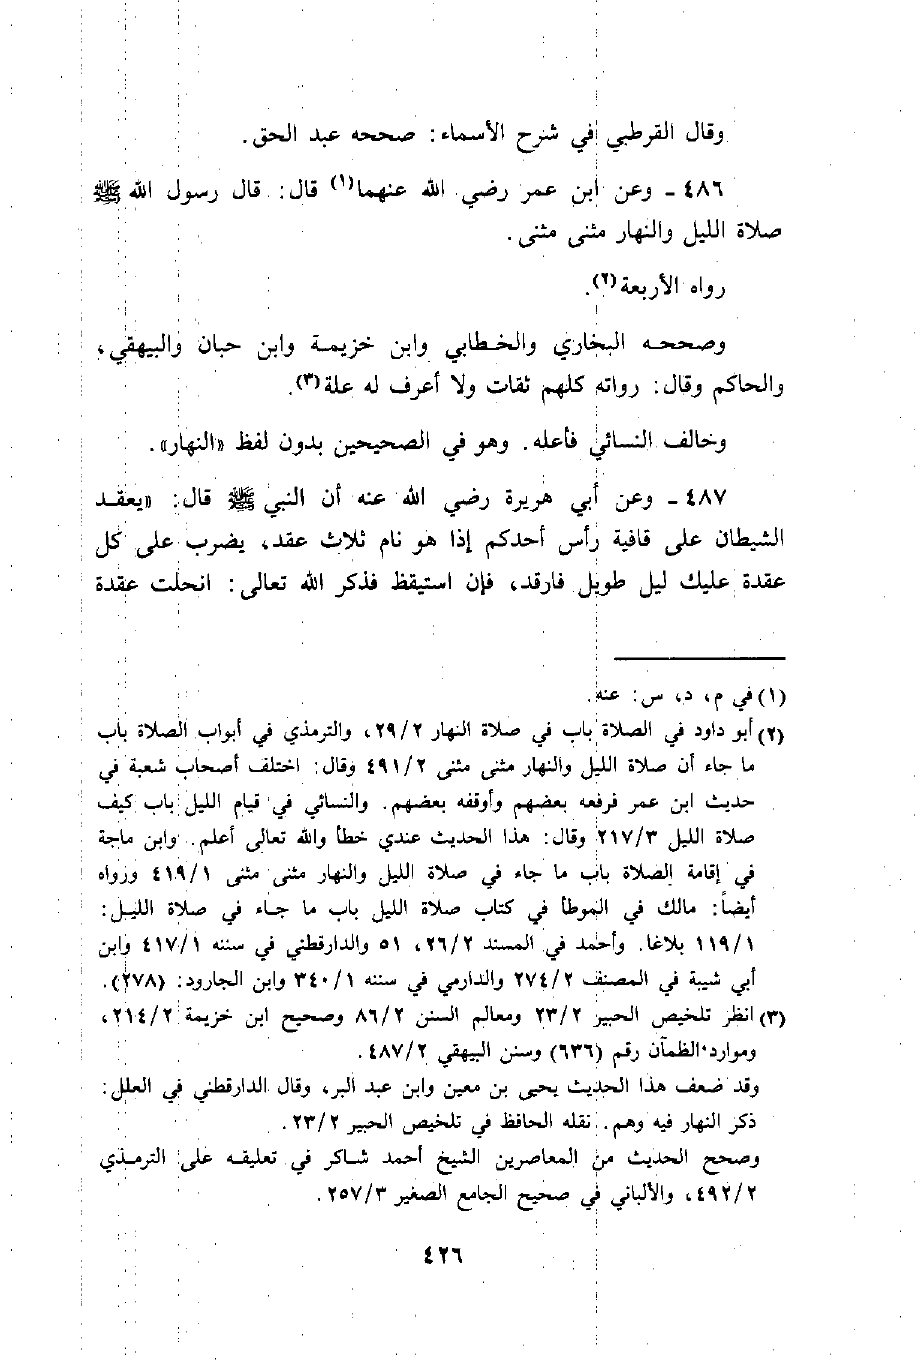 وقال القرطبي في شرح الأسماء: صححه عبد الحق.
٤٨٦ ـ وعن ابن عمر رضي الله عنهما(١) قال: قال رسول الله ﷺ
صلاة الليل والنهار مثنى مثنى.
رواه الأربعة(٢).
وصححه البخاري والخطابي وابن خزيمة وابن حبان والبيهقي،
والحاكم وقال: رواته كلهم ثقات ولا أعرف له علة(٣).
وخالف النسائي فأعله. وهو في الصحيحين بدون لفظ «النهار».
٤٨٧ ـ وعن أبي هريرة رضي الله عنه أن النبي ﷺ قال: «يعقد
الشيطان على قافية رأس أحدكم إذا هو نام ثلاث عقد، يضرب على كل
عقدة عليك ليل طويل فارقد، فإن استيقظ فذكر الله تعالى: انحلت عقدة
(١) في م، د، س: عنه.
(٢) أبو داود في الصلاة باب في صلاة النهار ٢٩/٢، والترمذي في أبواب الصلاة باب
ما جاء أن صلاة الليل والنهار مثنى مثنى ٤٩١/٢ وقال: اختلف أصحاب شعبة في
حديث ابن عمر فرفعه بعضهم وأوقفه بعضهم. والنسائي في قيام الليل باب كيف
صلاة الليل ٢١٧/٣ وقال: هذا الحديث عندي خطأ والله تعالى أعلم. وابن ماجة
في إقامة الصلاة باب ما جاء في صلاة الليل والنهار مثنى مثنى ٤١٩/١ ورواه
أيضاً: مالك في الموطأ في كتاب صلاة الليل باب ما جاء في صلاة الليل:
١١٩/١ بلاغا. وأحمد في المسند ٢٦/٢، ٥١ والدارقطني في سننه ٤١٧/١ وابن
أبي شيبة في المصنف ٢٧٤/٢ والدارمي في سننه ٣٤٠/١ وابن الجارود: (٢٧٨).
(٣) انظر تلخيص الحبير ٢٣/٢ ومعالم السنن ٨٦/٢ وصحيح ابن خزيمة ٢١٤/٢،
وموارد الظمآن رقم (٦٣٦) وسنن البيهقي ٤٨٧/٢.
وقد ضعف هذا الحديث يحيى بن معين وابن عبد البر، وقال الدارقطني في العلل:
ذكر النهار فيه وهم. نقله الحافظ في تلخيص الحبير ٢٣/٢.
وصحح الحديث من المعاصرين الشيخ أحمد شاكر في تعليقه على الترمذي
٤٩٢/٢، والألباني في صحيح الجامع الصغير ٢٥٧/٣.
٤٢٦